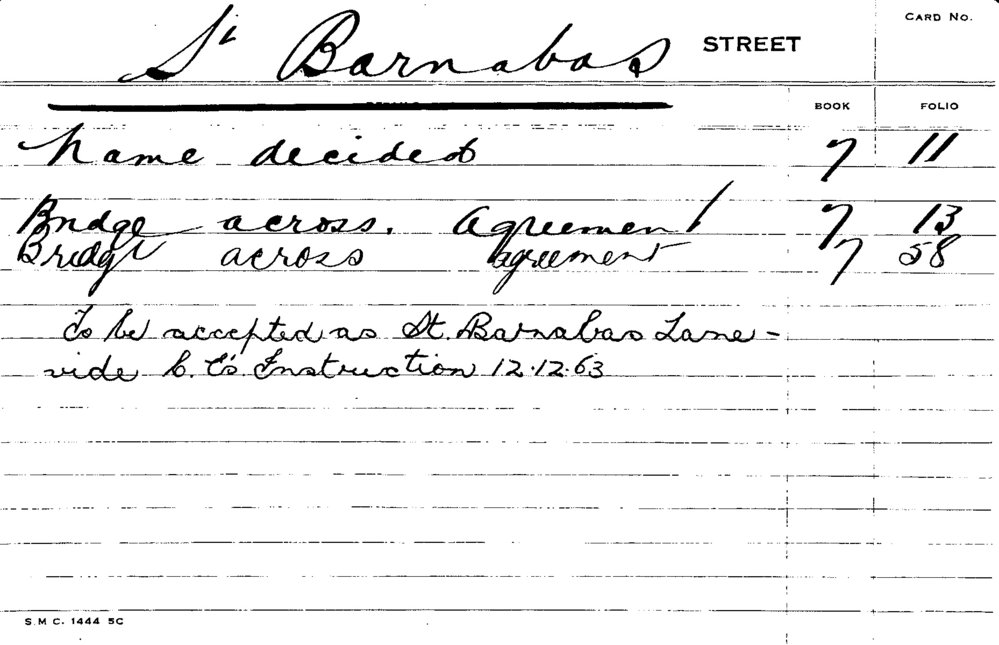 CARD No.
St Barnabas STREET
BOOK FOLIO
Name decided 7 11
Bridge across. Agreement 7 13
Bridge across agreement 7 58
To be accepted as St. Barnabas Lane -
vide C. E's. Instruction 12.12.63
S.M.C. 1444 5C